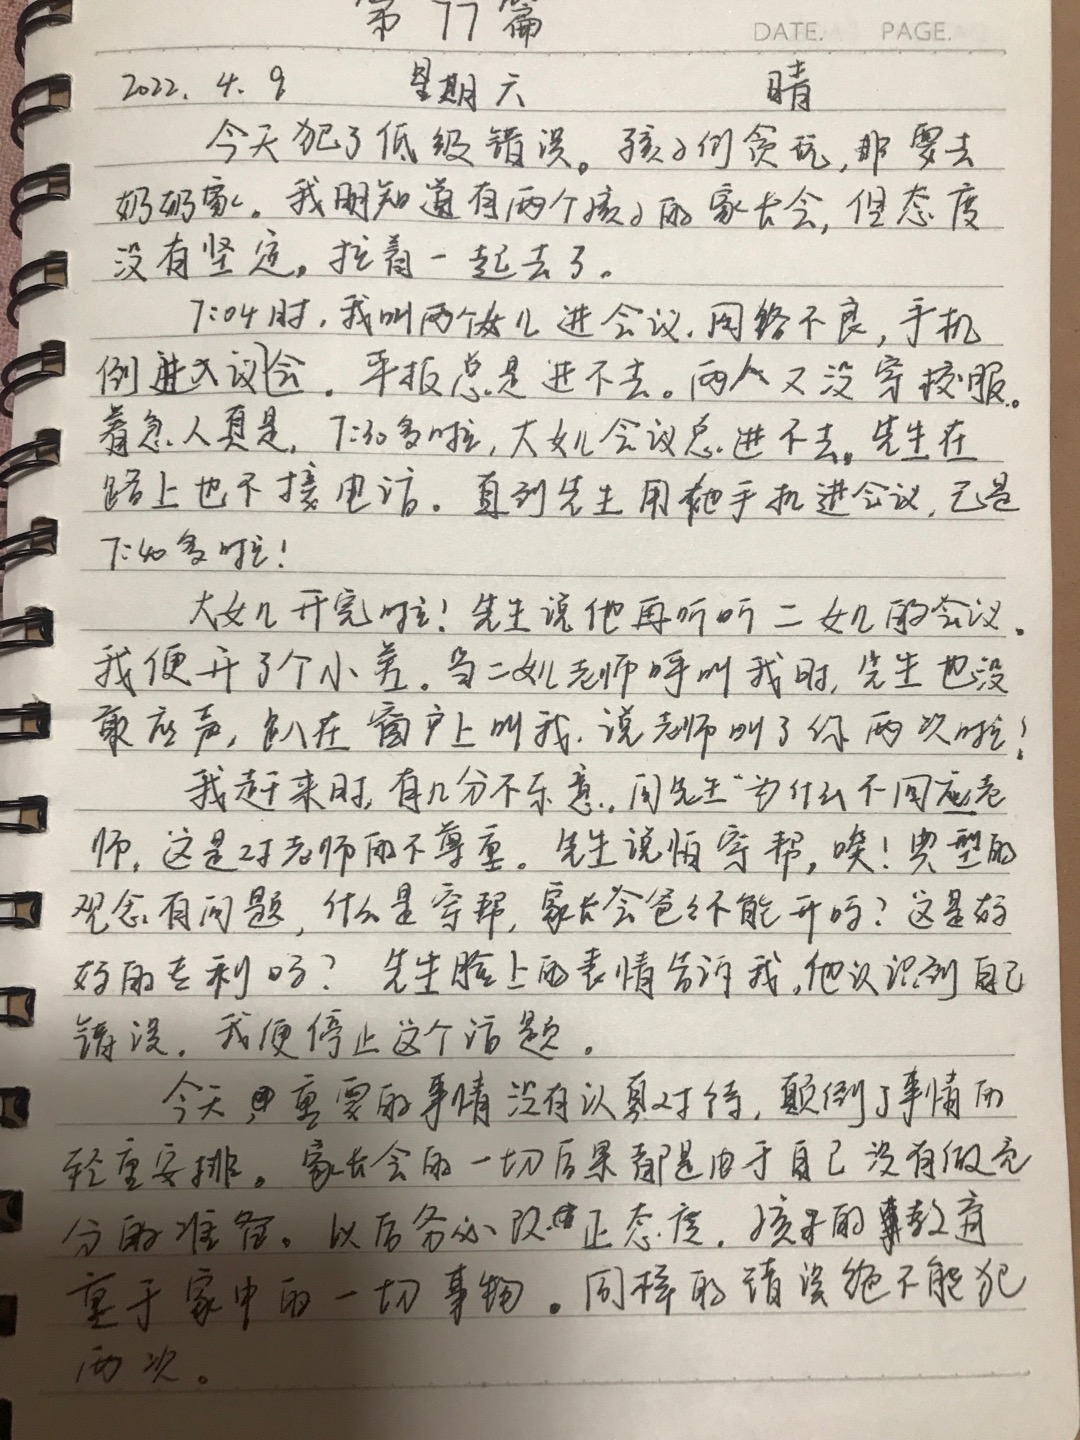 第77篇
DATE. PAGE.
2022.4.9 星期六 晴
今天犯了低级错误。孩子们贪玩,非要去
奶奶家。我明知道有两个孩子的家长会,但态度
没有坚定。拉着一起去了。
7:04时,我叫两个女儿进会议.网络不良,手机
倒进会。平板总是进不去。两人又没穿校服。
着急人真是,7:30多啦,大女儿会议总进不去。先生在
路上也不接电话。直到先生用他手机进会议,已是
7:40多啦!
大女儿开完啦!先生说他再听听二女儿的会议。
我便开了个小差。当二女儿老师呼叫我时,先生也没
敢应声,趴在窗户上叫我.说老师叫了你两次啦!
我赶来时,有几分不乐意.,问先生"为什么不回应老
师,这是对老师的不尊重。先生说怕穿帮,唉!典型的
观念有问题,什么是穿帮,家长会爸爸不能开吗?这是妈
妈的专利吗? 先生脸上的表情告诉我,他认识到自己
错误.我便停止这个话题。
今天,重要的事情没有认真对待,颠倒了事情的
轻重安排。家长会的一切后果都是由于自己没有做充
分的准备。以后务必改正态度.孩子的教育
重于家中的一切事物。同样的错误绝不能犯
两次。